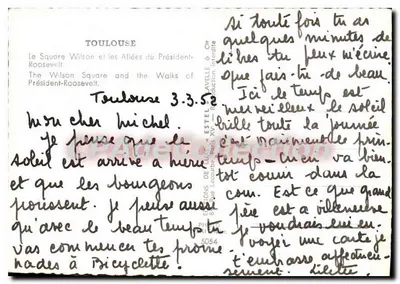 TOULOUSE
Le Square Wilson et les Allées du Président-
Roosevelt.
The Wilson Square and the Walks of
Président-Roosevelt.
Toulouse 3.3.52
mon cher michel.
je pense que le
soleil est arrivé à
et que les bourgeons
poussent. je pense aussi
qu'avec le beau temps tu
vas commencer tes prome
nades à Bicyclette.
5054
si toute fois tu as
quelques minutes de
libres tu peux m'écrire
que fais-tu de beau.
Ici le temps est
merveilleux le soleil
brille toute la journée
c'est vraiment le prin
temps - va bien
courir dans la
cour. Est ce que grand
père est a villeneuve
je voudrais lui en
voyer une carte je
t'embrasse affectueu-
sement. Lilette